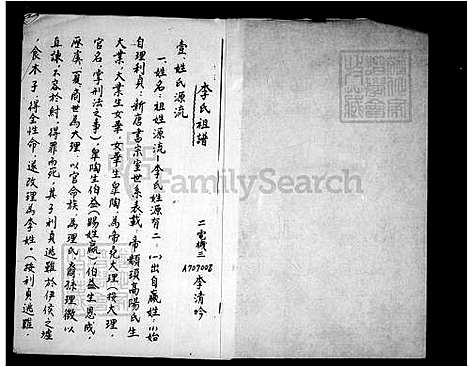 李氏祖譜
二電機三
A707008
李清吟
壹姓氏源流
一、姓名：祖姓源流—李氏姓源有二，㈠出自嬴姓，㈡始
自理利貞：新唐書宗室世系表載，帝顓頊高陽氏生
大業，大業生女華，女華生皋陶，為帝堯大理（按大理，
官名，掌刑法之事）皋陶生伯益（賜姓嬴）伯益生恩成，
歷虞、夏、商世為大理，以官命族為理氏，裔孫理徵以
直諫，不容於紂，得罪而死，其子利貞逃難於伊侯之墟
，食木子，得全性命，遂改理為李姓。（按利貞逃難
FamilySearch